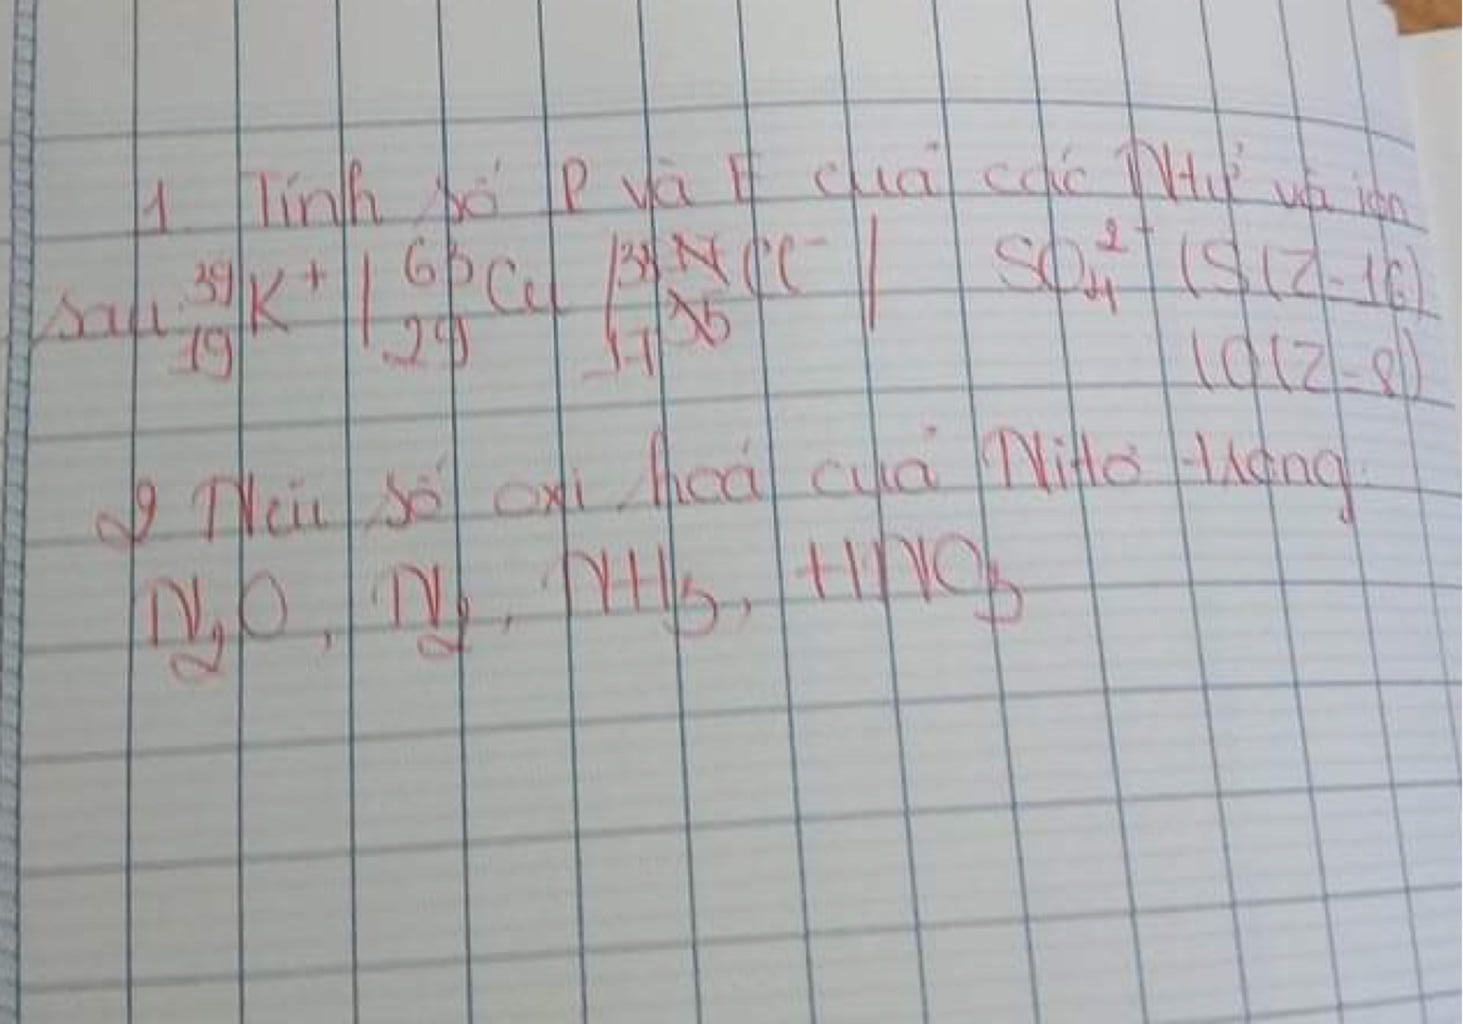 1 Tính số P và E của các Ntử và ion
sau 39 19 K+ | 63 29 Cu | 17 Cl- | SO4 2- (S (Z=16)
(O (Z=8))
2 Nêu số oxi hoá của Nitơ trong
N2O, N2, NH3, HNO3